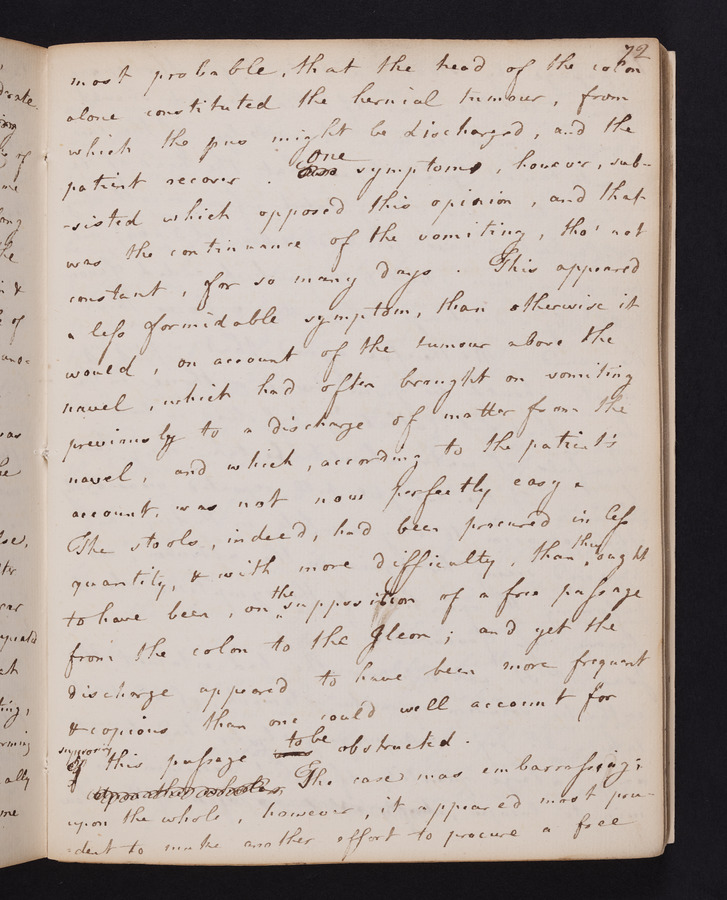 72
most probable, that the head of the colon
alone constituted the hernial tumour, from
which the pus might be discharged, and the
patient recover. One symptom, however, sub-
-sisted which opposed this opinion, and that
was the continuance of the vomiting, tho' not
constant, for so many days. This appeared
a less formidable symptom, than otherwise it
would, on account of the tumour above the
navel, which had often brought on vomiting
previously to a discharge of matter from the
navel, and which, according to the patient's
account, was not now perfectly easy.
The stools, indeed, had been procured in less
quantity, & with more difficulty, than they ought
to have been, on the supposition of a free passage
from the colon to the Ileon; and yet the
discharge appeared to have been more frequent
& copious than one could well account for
supposing this passage to be obstructed.
The case was embarrassing;
upon the whole, however, it appeared most pru-
-dent to make another effort to procure a free